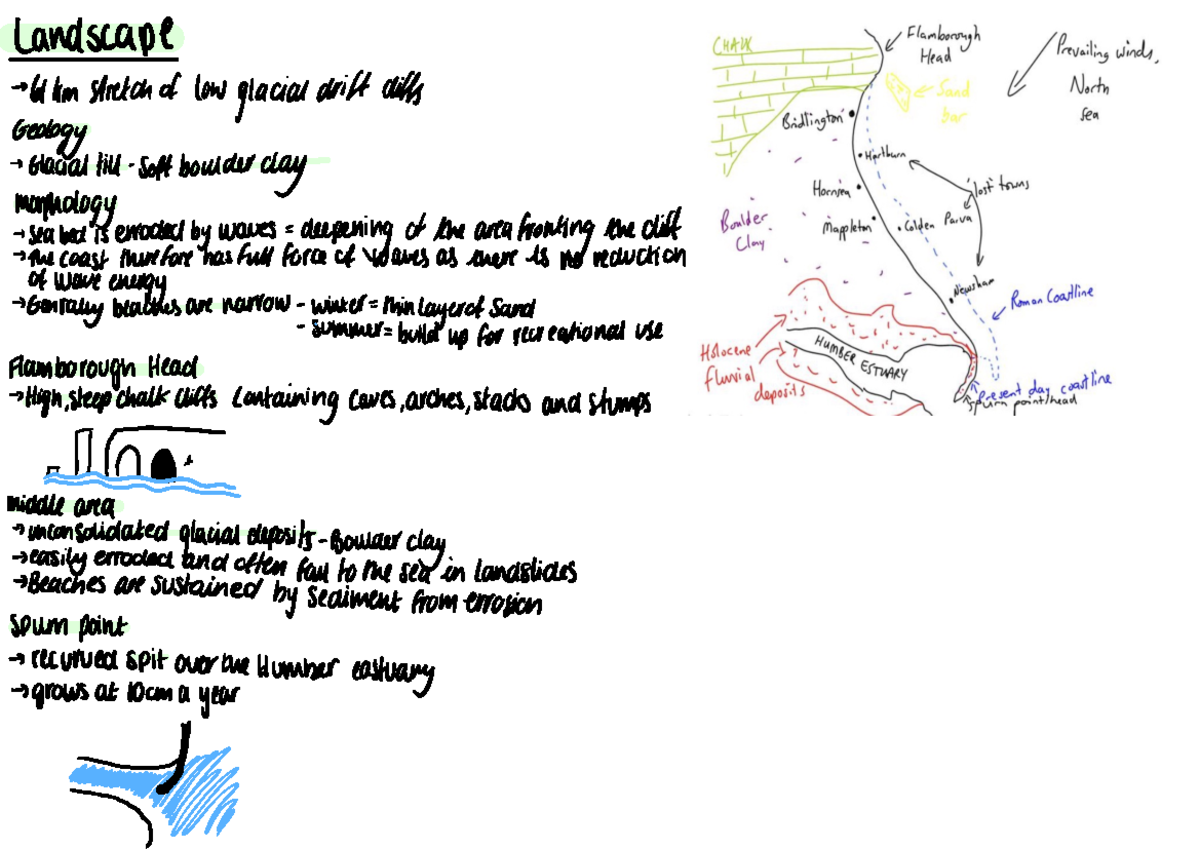 Landscape
→ 61 km stretch of low glacial drift cliffs
Geology
→ Glacial till - soft boulder clay
Morphology
→ Sea bed is erroded by waves = deepening of the area fronting the cliff
→ The coast therefore has full force of waves as there is no reduction
of wave energy
→ Genrally beaches are narrow - winter = thin layer of sand
- summer = build up for recreational use
Flamborough Head
→ High, steep chalk cliffs containing caves, arches, stacks and stumps
Middle area
→ unconsolidated glacial deposits - Boulder clay
→ easily erroded and often fall to the sea in landslides
→ Beaches are sustained by sediment from errosion
Spurn point
→ recurved spit over the Humber eastuary
→ grows at 10cm a year
CHALK
Flamborough
Head
Prevailing winds,
North
sea
Sand
bar
Bridlington
Hartburn
Hornsea
lost towns
Boulder
Clay
Mappleton
Colden Parva
Newsham
Roman Coastline
Holocene
fluvial
deposits
HUMBER ESTUARY
Present day coastline
Spurn point/head